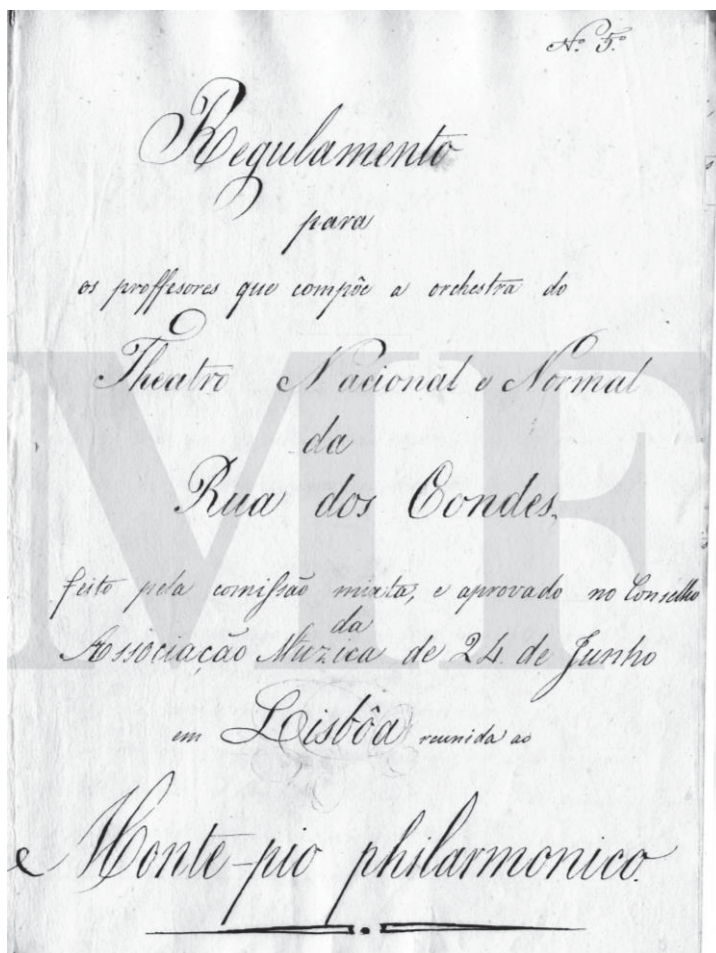 Nº 5º
Regulamento
para
os proffesores que compõe a orchestra do
Theatro Nacional e Normal
da
Rua dos Condes,
feito pela comissão mixta, e aprovado no Conselho
da
Associação Muzica de 24 de Junho
em Lisbôa reunida ao
Monte-pio philarmonico.
MF